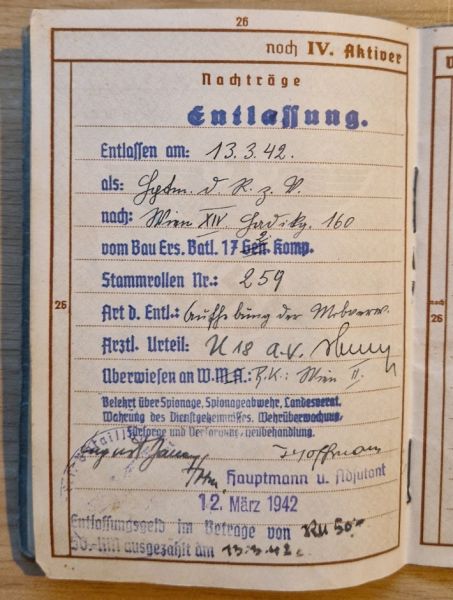 26
noch IV. Aktiver
Nachträge
Entlassung.
Entlassen am: 13.3.42.
als: Hptm. d. R. z. V.
nach: Wien XIV Hadikg. 160
vom Bau Ers. Batl. 17 2. Gen. Komp.
Stammrollen Nr.: 259
Art d. Entl.: Aufhebung der Mobverw.
Arztl. Urteil: U 18 a.v.
Überwiesen an W.M.A.: B.K.: Wien II.
Belehrt über Spionage, Spionageabwehr, Landesverrat.
Wahrung des Dienstgeheimnisses. Wehrüberwachung,
Fürsorge und Versorgung, Heilbehandlung.
Hoffmann
Hauptmann u. Adjutant
12. März 1942
Entlassungsgeld im Betrage von RM 50.-
ausgezahlt am 13.3.42.
26
noch
26